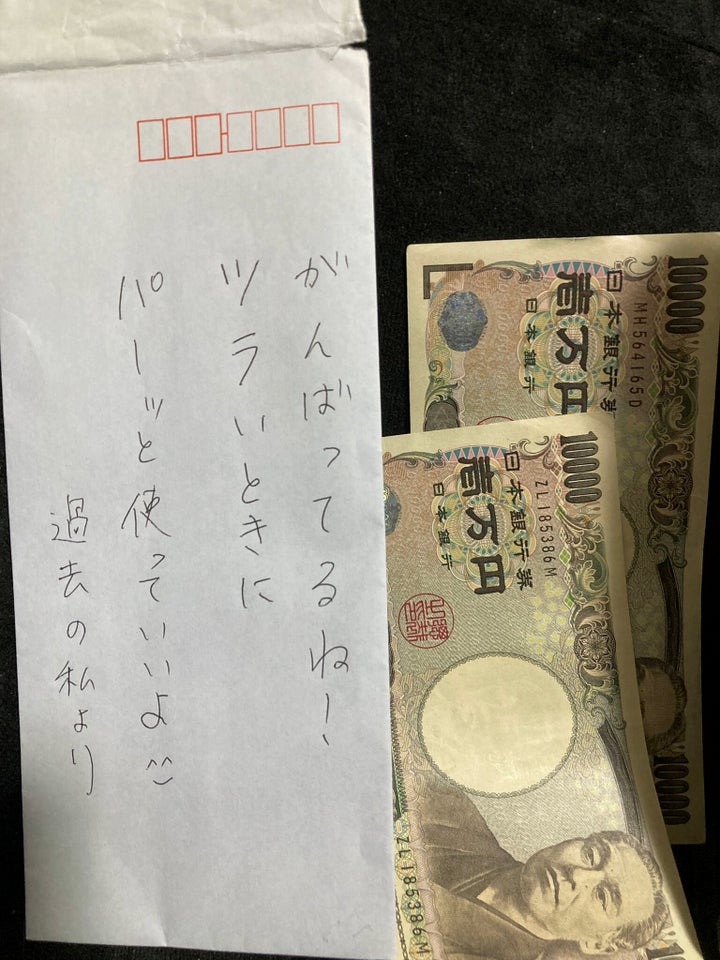 がんばってるねー
ツラいときに
パーッと使っていいよ
過去の私より
10000
日本銀行券
壱万円
日本銀行
MH564165D
10000
10000
日本銀行券
壱万円
日本銀行
ZL185386M
ZL185386M